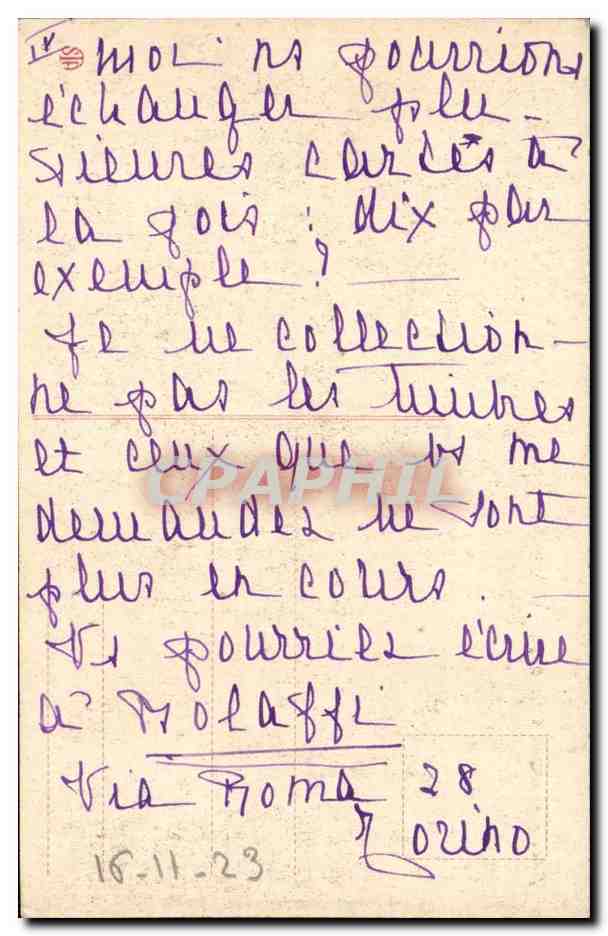 IV moi ns pourrions
échanger plu-
sieures cartes à
la fois : dix par
exemple ?
Je ne collection-
ne pas les timbres
et ceux que vs me
CPAPHIL
demandez ne sont
plus en cours.
Vs pourriez écrire
à Bolaffi
Via Roma 28
Torino
16-11-23